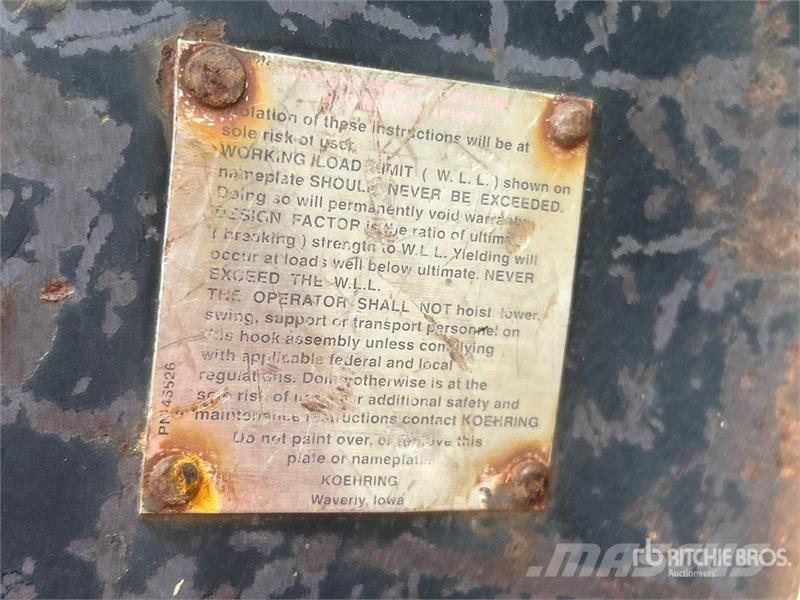 violation of these instructions will be at
sole risk of user.
WORKING LOAD LIMIT ( W. L. L. ) shown on
nameplate SHOULD NEVER BE EXCEEDED.
Doing so will permanently void warranty.
DESIGN FACTOR is the ratio of ultimate
( breaking ) strength to W.L.L. Yielding will
occur at loads well below ultimate. NEVER
EXCEED THE W.L.L.
THE OPERATOR SHALL NOT hoist, lower,
swing, support or transport personnel on
this hook assembly unless complying
with applicable federal and local
regulations. Doing otherwise is at the
sole risk of user. For additional safety and
maintenance instructions contact KOEHRING
Do not paint over, or remove this
plate or nameplate.
KOEHRING
Waverly, Iowa
MASCUS
rb RITCHIE BROS.
Auctioneers